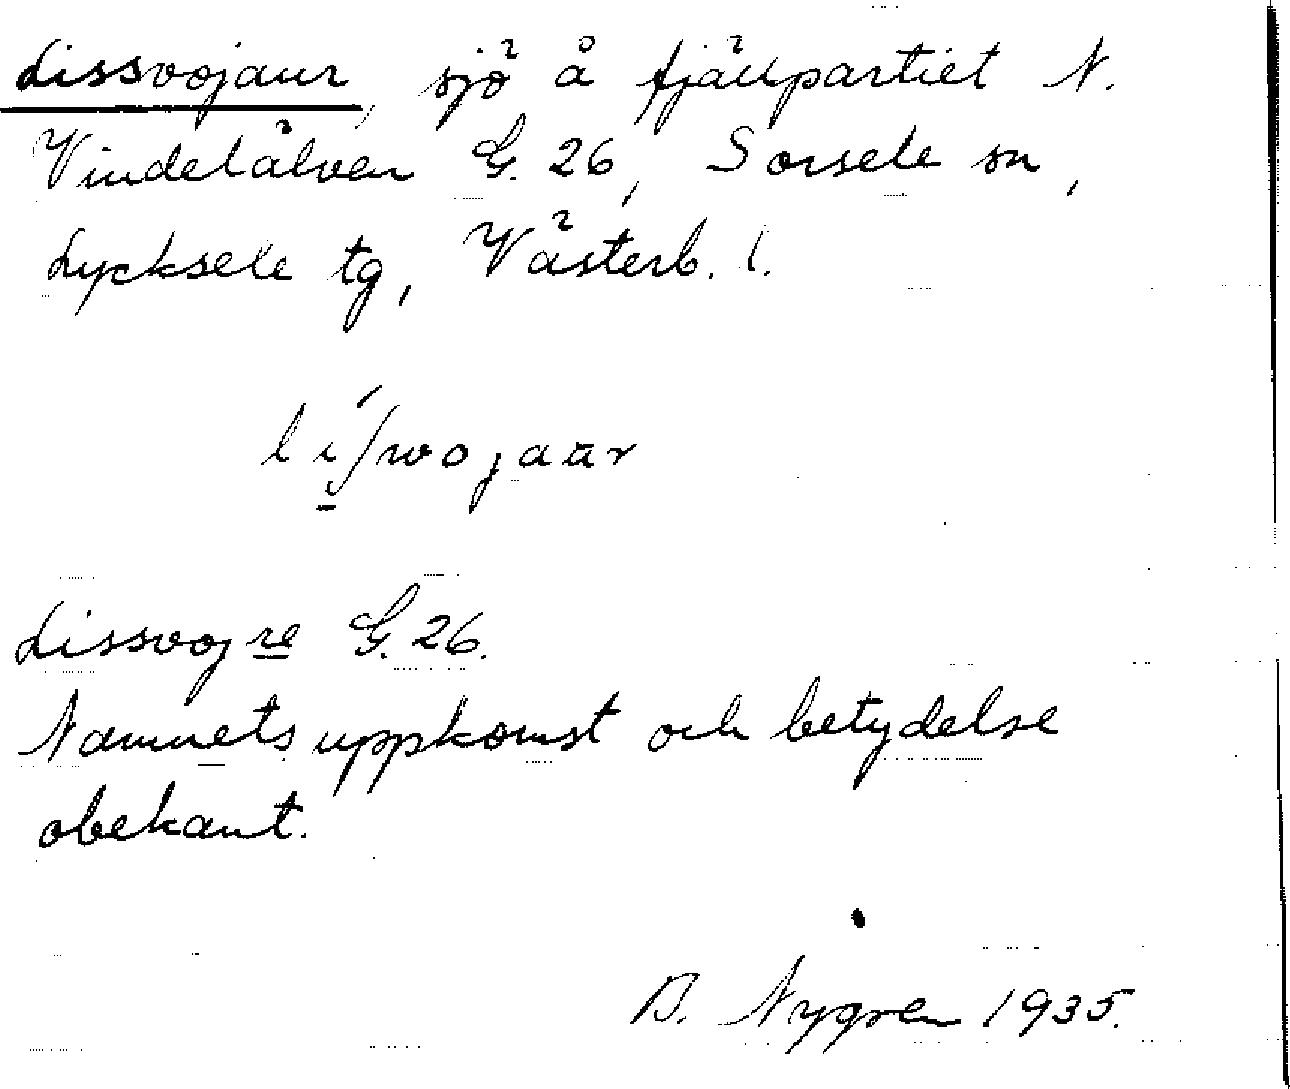 Lissvojaur, sjö å fjällpartiet N.
Vindelälven G. 26, Sorsele sn,
Lycksele tg, Västerb. l.
Lissvojre G. 26.
Namnets uppkomst och betydelse
obekant.
B. Nygren 1935.